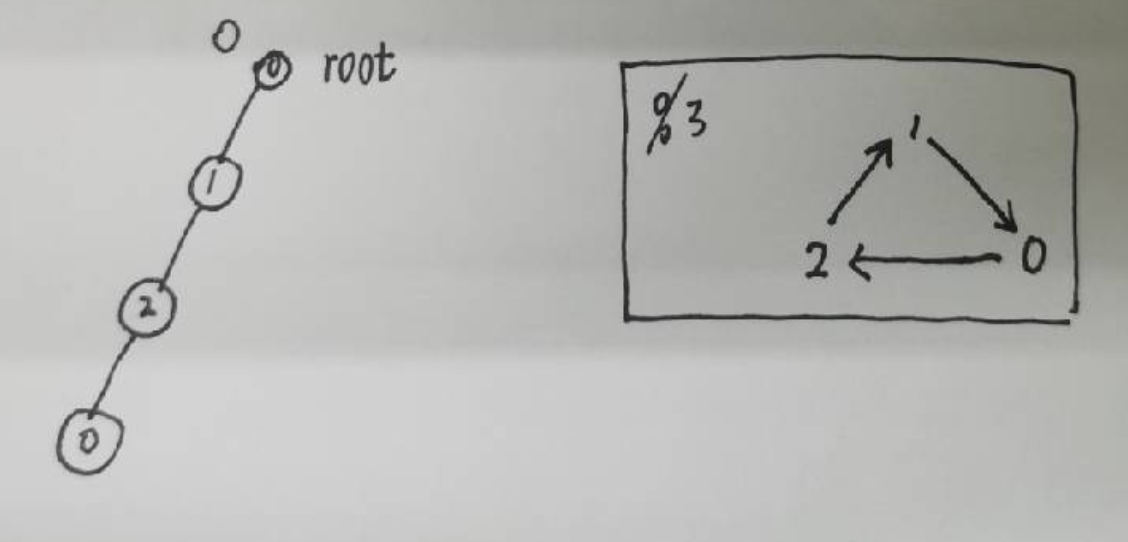 0
0 root
1
2
0
%3
1
2 0